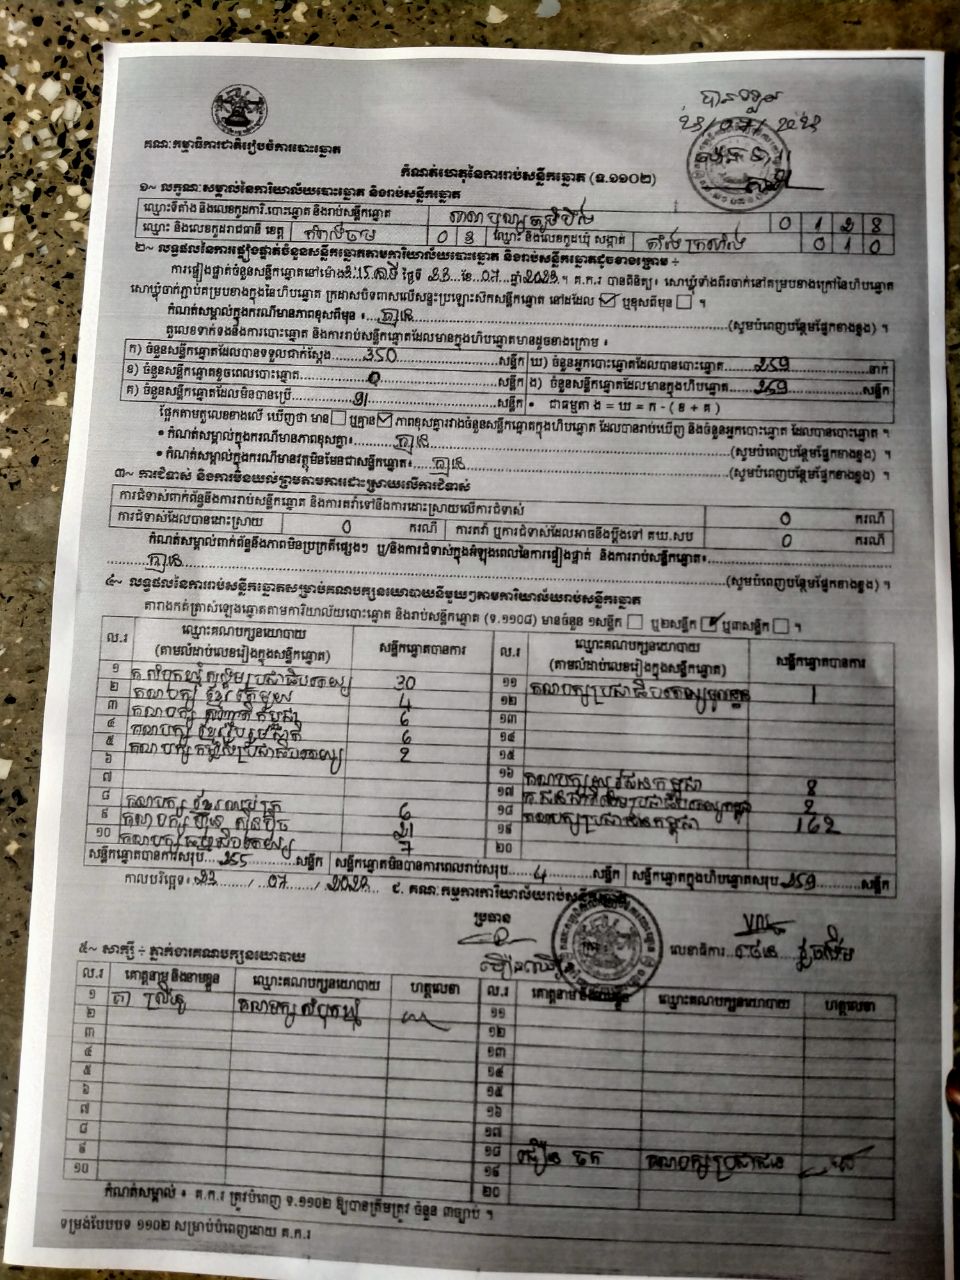 គណៈកម្មាធិការជាតិរៀបចំការបោះឆ្នោត
កំណត់ហេតុនៃការរាប់សន្លឹកឆ្នោត (ទ.១១០២)
១~ លក្ខណៈសម្គាល់នៃការិយាល័យបោះឆ្នោត និងរាប់សន្លឹកឆ្នោត
ឈ្មោះទីតាំង និងលេខកូដការិ.បោះឆ្នោត និងរាប់សន្លឹកឆ្នោត 0 1 2 8
ឈ្មោះ និងលេខកូដរាជធានី ខេត្ត កំពង់ចាម 0 3 ឈ្មោះ និងលេខកូដឃុំ សង្កាត់ 0 1 0
២~ លទ្ធផលនៃការផ្ទៀងផ្ទាត់ចំនួនសន្លឹកឆ្នោតតាមការិយាល័យបោះឆ្នោត និងរាប់សន្លឹកឆ្នោតដូចខាងក្រោម ÷
ការផ្ទៀងផ្ទាត់ចំនួនសន្លឹកឆ្នោតនៅម៉ោង ថ្ងៃទី 23 ខែ 07 ឆ្នាំ 2023 ។ គ.ក.រ បានពិនិត្យ៖ សោឃ្លុំទាំងពីរចាក់នៅគម្របខាងក្រៅនៃហិបឆ្នោត
សោឃ្លុំចាក់ភ្ជាប់គម្របខាងក្នុងនៃហិបឆ្នោត ក្រដាសបិទពាសលើសន្ទះប្រឡោះស៊កសន្លឹកឆ្នោត នៅដដែល ☑ ឬខុសពីមុន ☐ ។
កំណត់សម្គាល់ក្នុងករណីមានភាពខុសពីមុន ៖ គ្មាន (សូមបំពេញបន្ថែមផ្នែកខាងខ្នង) ។
តួលេខទាក់ទងនឹងការបោះឆ្នោត និងការរាប់សន្លឹកឆ្នោតដែលមានក្នុងហិបឆ្នោតមានដូចខាងក្រោម ៖
ក) ចំនួនសន្លឹកឆ្នោតដែលបានទទួលជាក់ស្តែង 350 សន្លឹក ឃ) ចំនួនអ្នកបោះឆ្នោតដែលបានបោះឆ្នោត 259 នាក់
ខ) ចំនួនសន្លឹកឆ្នោតខូចពេលបោះឆ្នោត 0 សន្លឹក ង) ចំនួនសន្លឹកឆ្នោតដែលមានក្នុងហិបឆ្នោត 259 សន្លឹក
គ) ចំនួនសន្លឹកឆ្នោតដែលមិនបានប្រើ 91 សន្លឹក • ជាធម្មតា ង = ឃ = ក - ( ខ + គ )
ផ្អែកតាមតួលេខខាងលើ ឃើញថា មាន ☐ ឬគ្មាន ☑ ភាពខុសគ្នារវាងចំនួនសន្លឹកឆ្នោតក្នុងហិបឆ្នោត ដែលបានរាប់ឃើញ និងចំនួនអ្នកបោះឆ្នោត ដែលបានបោះឆ្នោត ។
• កំណត់សម្គាល់ក្នុងករណីមានភាពខុសគ្នា៖ គ្មាន (សូមបំពេញបន្ថែមផ្នែកខាងខ្នង) ។
• កំណត់សម្គាល់ក្នុងករណីមានវត្ថុមិនមែនជាសន្លឹកឆ្នោត៖ គ្មាន (សូមបំពេញបន្ថែមផ្នែកខាងខ្នង) ។
៣~ ការជំទាស់ និងការមិនយល់ព្រមតាមការដោះស្រាយលើការជំទាស់
ការជំទាស់ពាក់ព័ន្ធនឹងការរាប់សន្លឹកឆ្នោត និងការតវ៉ាទៅនឹងការដោះស្រាយលើការជំទាស់ 0 ករណី
ការជំទាស់ដែលបានដោះស្រាយ 0 ករណី ការតវ៉ា ឬការជំទាស់ដែលអាចនឹងប្តឹងទៅ គឃ.សប 0 ករណី
កំណត់សម្គាល់ពាក់ព័ន្ធនឹងភាពមិនប្រក្រតីផ្សេងៗ ឬ/និងការជំទាស់ក្នុងអំឡុងពេលនៃការផ្ទៀងផ្ទាត់ និងការរាប់សន្លឹកឆ្នោត៖
គ្មាន (សូមបំពេញបន្ថែមផ្នែកខាងខ្នង) ។
៤~ លទ្ធផលនៃការរាប់សន្លឹកឆ្នោតសម្រាប់គណបក្សនយោបាយនីមួយៗតាមការិយាល័យរាប់សន្លឹកឆ្នោត
តារាងកត់ត្រាសំឡេងឆ្នោតតាមការិយាល័យបោះឆ្នោត និងរាប់សន្លឹកឆ្នោត (ទ.១១០៨) មានចំនួន ១សន្លឹក ☐ ឬ២សន្លឹក ☑ ឬ៣សន្លឹក ☐ ។
ល.រ ឈ្មោះគណបក្សនយោបាយ (តាមលំដាប់លេខរៀងក្នុងសន្លឹកឆ្នោត) សន្លឹកឆ្នោតបានការ ល.រ ឈ្មោះគណបក្សនយោបាយ (តាមលំដាប់លេខរៀងក្នុងសន្លឹកឆ្នោត) សន្លឹកឆ្នោតបានការ
១ 30 ១១ គណបក្សប្រជាធិបតេយ្យមូលដ្ឋាន 1
២ គណបក្ស ខ្មែរតែមួយ 4 ១២
៣ គណបក្ស 6 ១៣
៤ គណបក្ស ខ្មែររួបរួមជាតិ 6 ១៤
៥ គណបក្ស 2 ១៥
៦ ១៦ 8
៧ ១៧ 2
៨ គណបក្ស 6 ១៨ គណបក្សប្រជាជនកម្ពុជា 162
៩ គណបក្ស ហ៊្វុនស៊ិនប៉ិច 21 ១៩
១០ គណបក្សធម្មាធិបតេយ្យ 7 ២០
សន្លឹកឆ្នោតបានការសរុប 255 សន្លឹក សន្លឹកឆ្នោតមិនបានការពេលរាប់សរុប 4 សន្លឹក សន្លឹកឆ្នោតក្នុងហិបឆ្នោតសរុប 259 សន្លឹក
កាលបរិច្ឆេទ៖ 23 / 07 / 2023 ៩. គណៈកម្មការការិយាល័យរាប់សន្លឹកឆ្នោត
ប្រធាន
លេខាធិការ
៥~ សាក្សី ÷ ភ្នាក់ងារគណបក្សនយោបាយ
ល.រ គោត្តនាម និងនាមខ្លួន ឈ្មោះគណបក្សនយោបាយ ហត្ថលេខា ល.រ គោត្តនាម និងនាមខ្លួន ឈ្មោះគណបក្សនយោបាយ ហត្ថលេខា
១ គណបក្ស ១១
២ ១២
៣ ១៣
៤ ១៤
៥ ១៥
៦ ១៦
៧ ១៧
៨ ១៨ គណបក្សប្រជាជន
៩ ១៩
១០ ២០
កំណត់សម្គាល់ ៖ គ.ក.រ ត្រូវបំពេញ ទ.១១០២ ឱ្យបានត្រឹមត្រូវ ចំនួន ៣ច្បាប់ ។
ទម្រង់បែបបទ ១១០២ សម្រាប់បំពេញដោយ គ.ក.រ